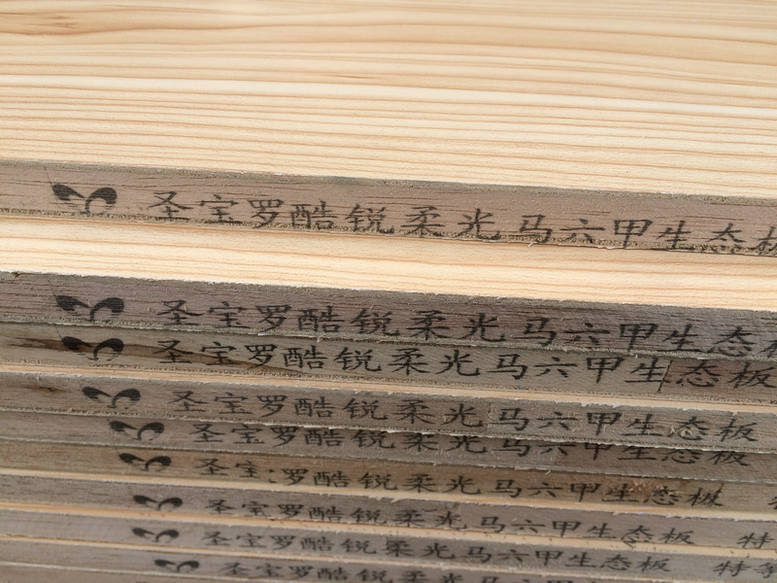 圣宝罗酷锐柔光马六甲生态板
圣宝罗酷锐柔光马六甲生态
圣宝罗酷锐柔光马六甲生态板
圣宝罗酷锐柔光马六甲生态板
圣宝罗酷锐柔光马六甲生态板
圣宝罗酷锐柔光马六甲生态板
圣宝罗酷锐柔光马六甲生态板 特
圣宝罗酷锐柔光马六甲生态板 特等
圣宝罗酷锐柔光马六甲生态板